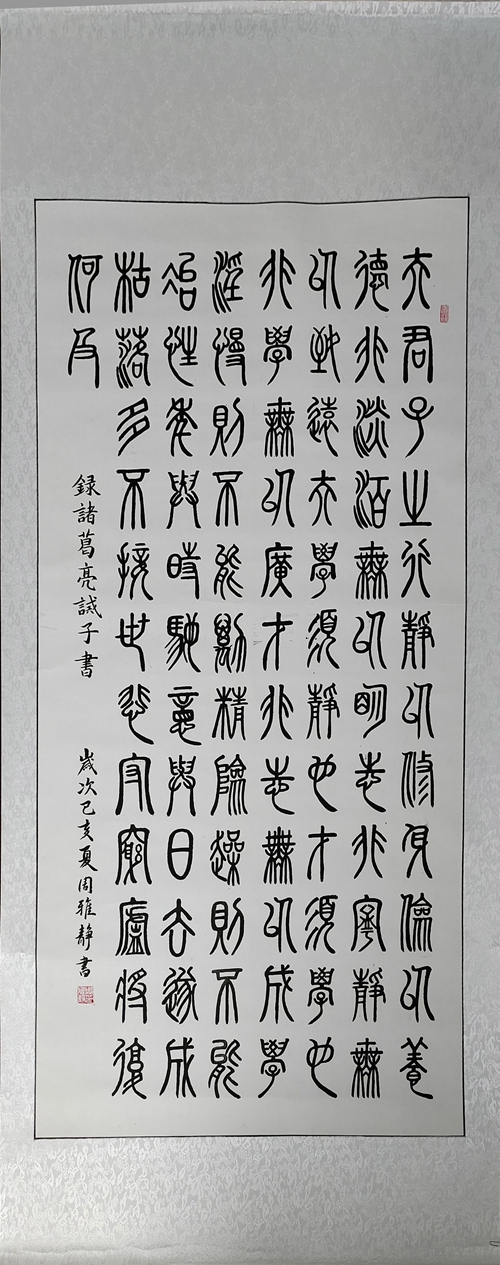 夫君子之行靜以修身儉以養
德非淡泊無以明志非寧靜無
以致遠夫學須靜也才須學也
非學無以廣才非志無以成學
淫慢則不能勵精險躁則不能
冶性年與時馳意與日去遂成
枯落多不接世悲守窮廬將復
何及
錄諸葛亮誡子書
歲次己亥夏周雅靜書